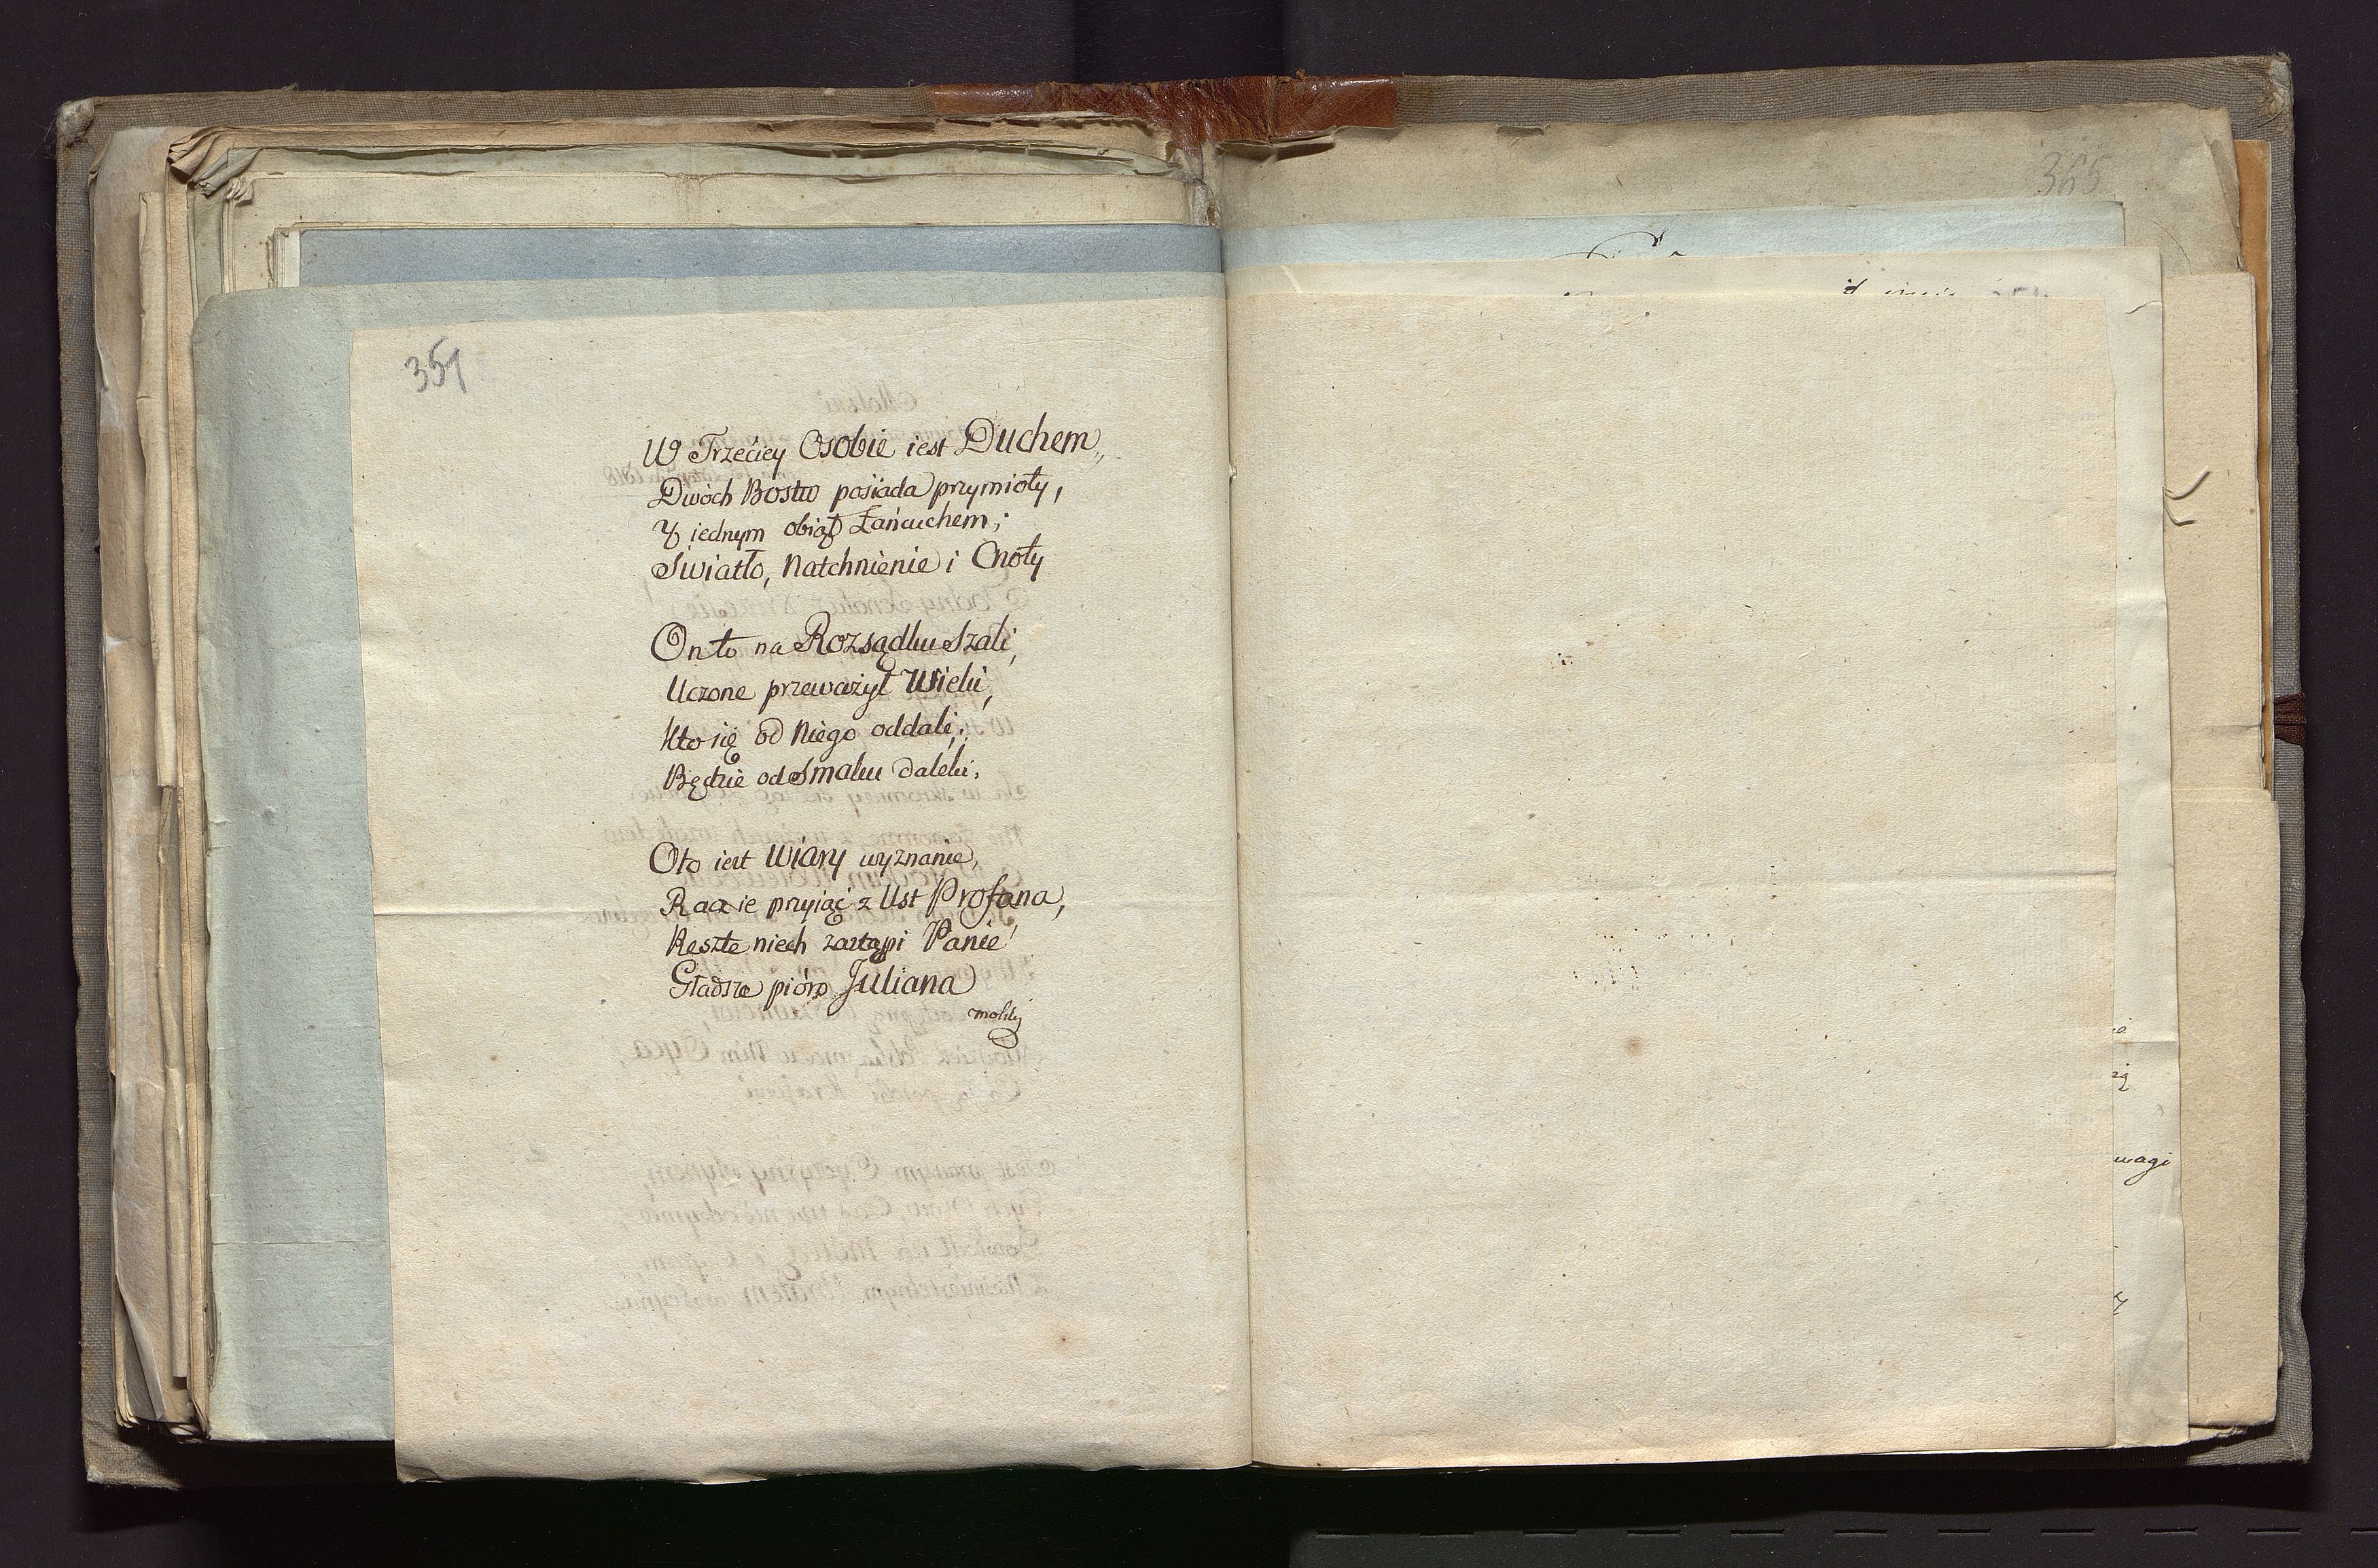 351
W Trzećiey Osobie iest Duchem,
Dwóch Bostw posiada przymioty,
Y iednym obiął Łańcuchem;
Swiatło, Natchnienie i Cnoty
On to na Rozsądku Szali,
Uczone przeważył Wieki,
Kto się od Niego oddali;
Będzie od Smaku daleki.
Oto iest Wiary wyznanie,
Raczcie przyiąć z Ust Profana,
Resztę niech zastąpi Panie!
Gładsze pióro Juliana
365
wagi